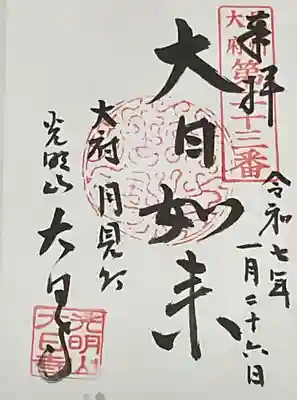 奉拝
大府
第二十三番
令和七年
一月二十六日
大日如来
大府 月見町
光明山 大日寺
光明山
大日寺